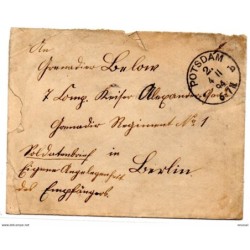 An
Grenadier Below
7 Comp. Keiser Alexander
Grenadir Regiment No 1
Soldatenbrief in
Berlin
Eigene Angelegenheit
des Empfängers
POTSDAM
2
4 11
94
6-7N